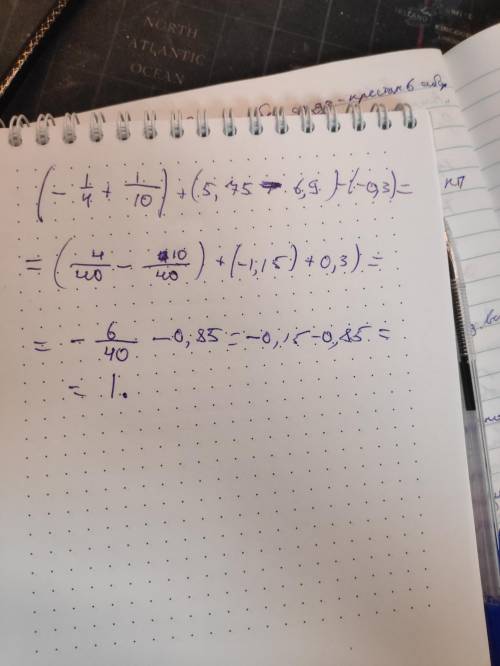 NORTH
ATLANTIC
OCEAN
(- 1/4 + 1/10) + (5,75 - 6,9) - (-0,3) =
= (4/40 - 10/40) + (-1,15) + 0,3) =
= - 6/40 - 0,85 = -0,15 - 0,85 =
= 1.